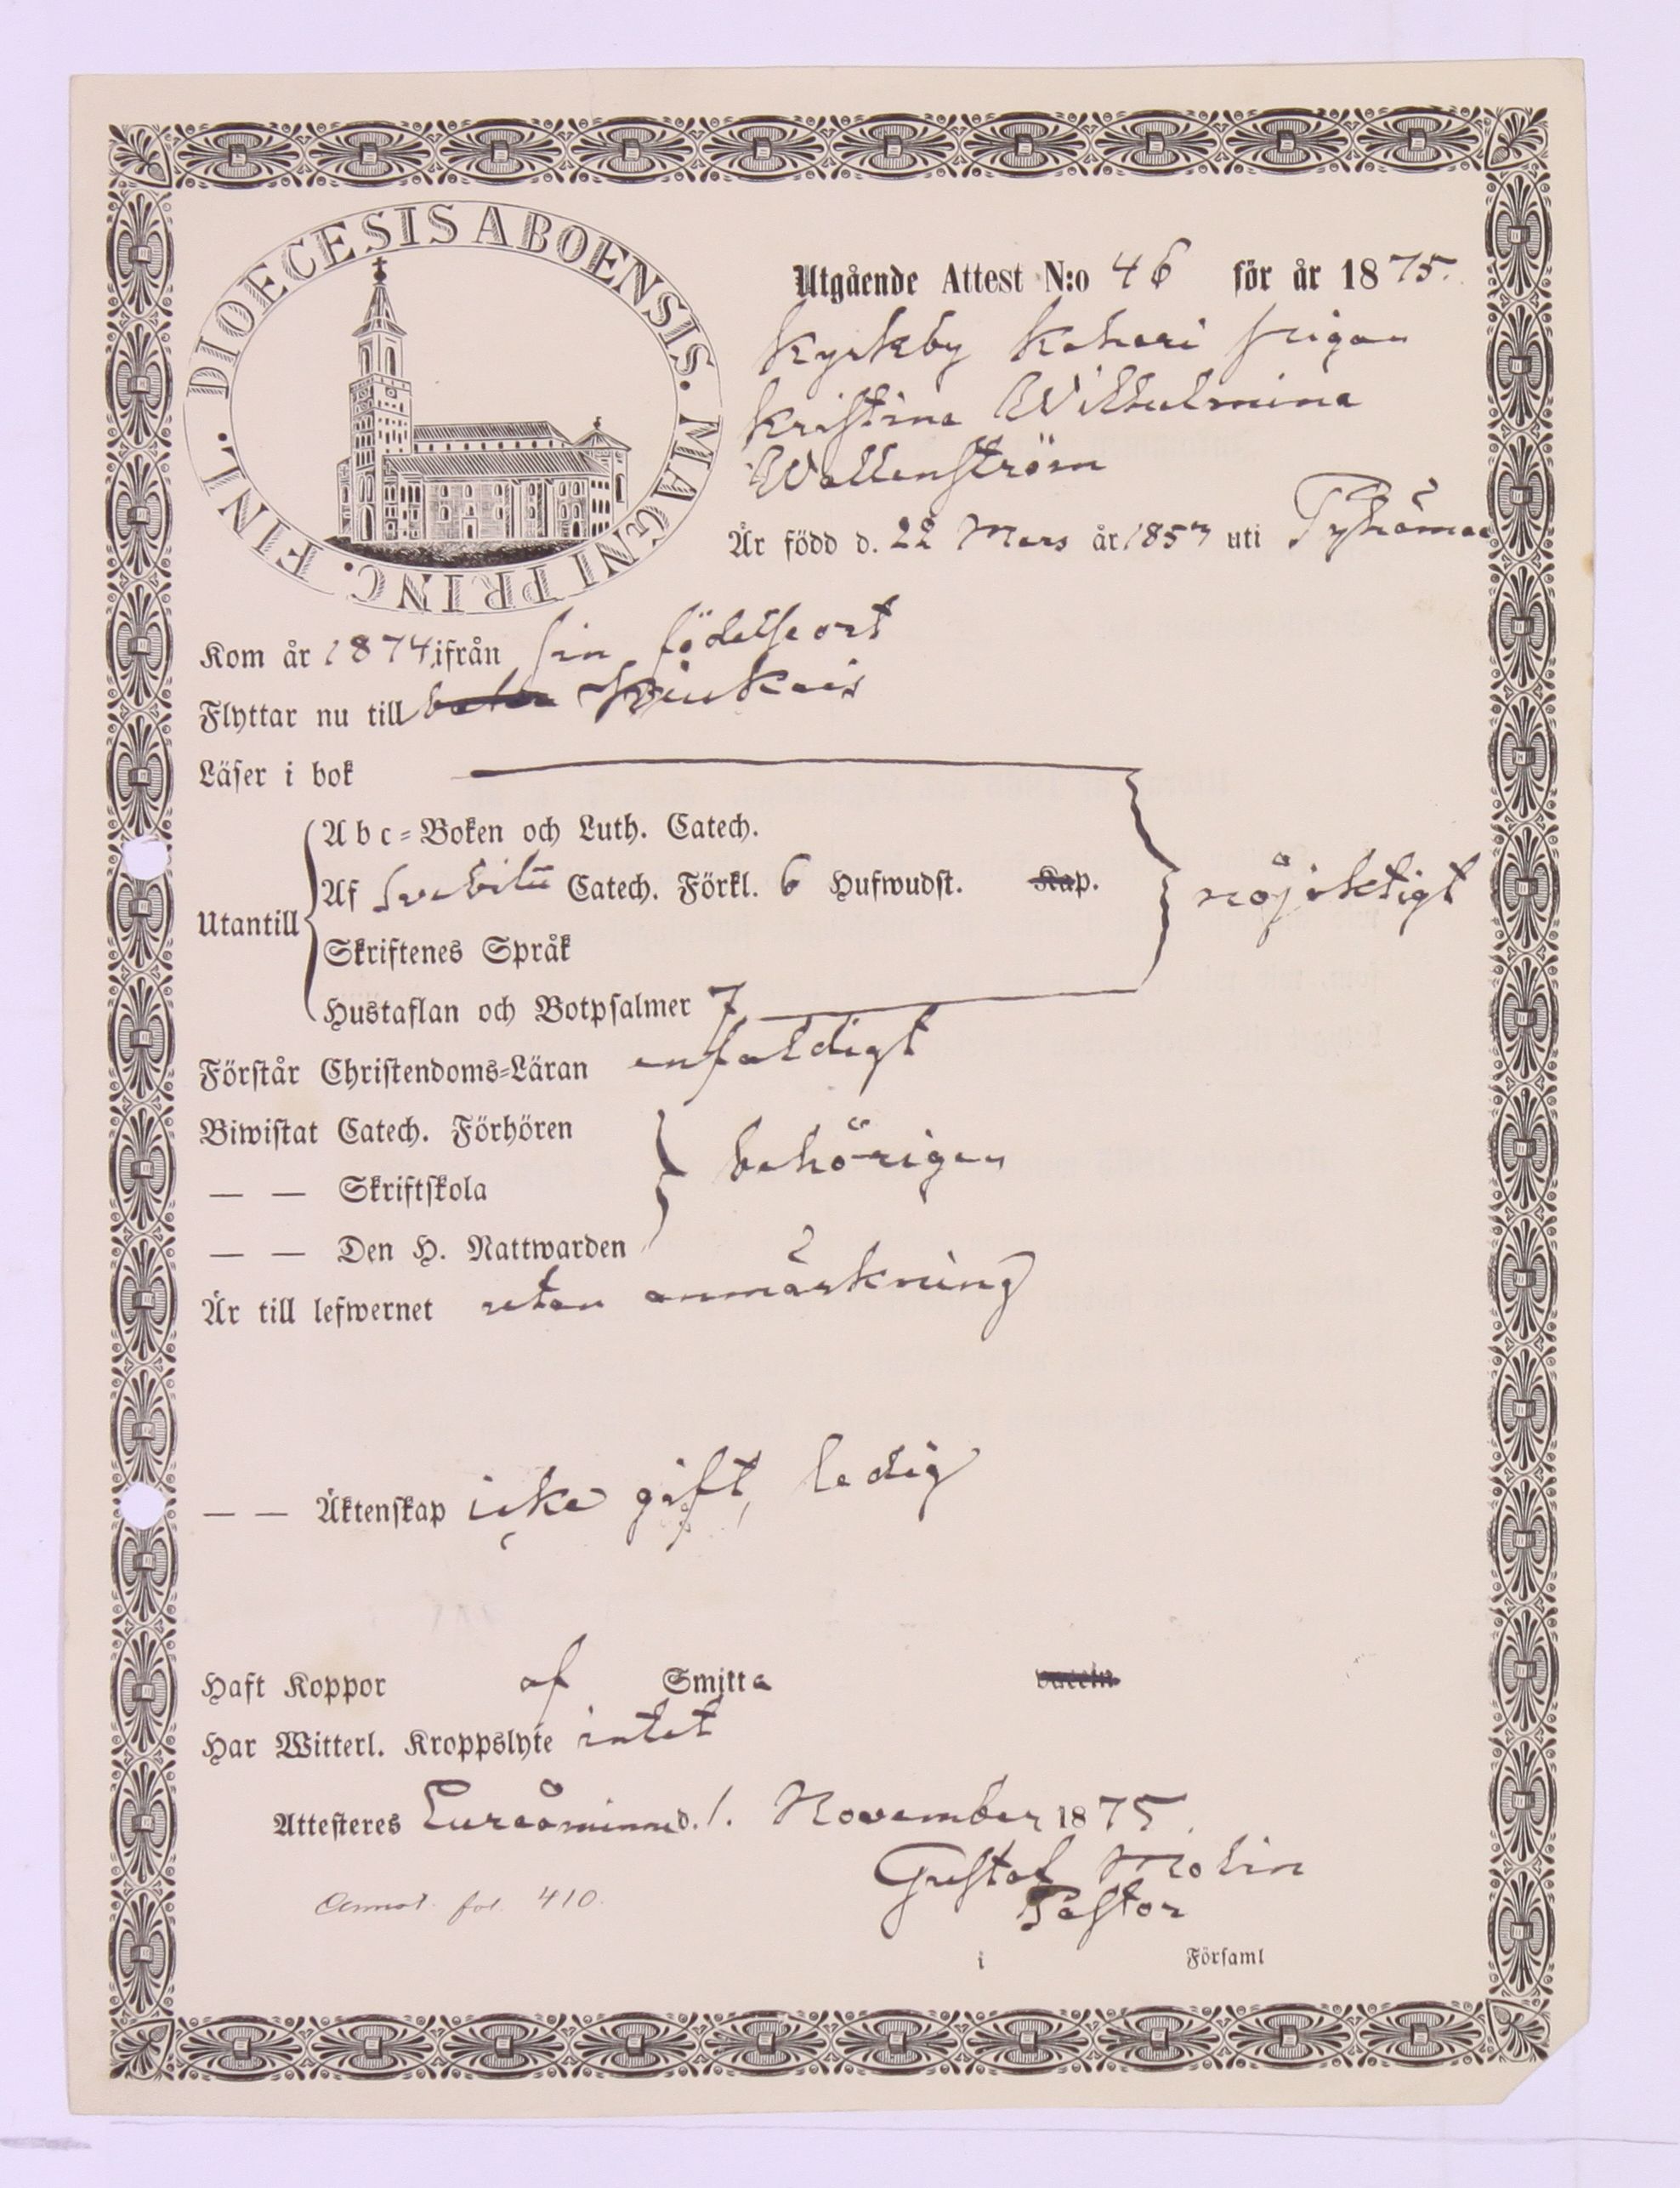 DIOECESIS ABOENSIS. MAGNI PRINC. FINL.
Utgående Attest N:o 46 för år 1875.
Kyrkby Kahari pigan
Kristina Wilhelmina
Wallenström
Är född d. 22 Mars år 1857 uti Pyhämaa
Kom år 1874 ifrån sin födelseort
Flyttar nu till Kjukais
Läser i bok
Abc-Boken och Luth. Catech.
Af Svebilii Catech. Förkl. 6 Hufwudst. Kap.
nöjaktigt
Utantill
Skriftenes Språk
Hustaflan och Botpsalmer 7
Förstår Christendoms-Läran enfaldigt
Biwistat Catech. Förhören
behörigen
— — Skriftskola
— — Den H. Nattwarden
Är till lefwernet utan anmärkning
— — Äktenskap icke gift, ledig
Haft Koppor af Smitta vaccin
Har Witterl. Kroppslyte intet
Attesteres Euraåminne d. 1. November 1875.
Gustaf Molin
Pastor
Annot. fol. 410.
i Församl